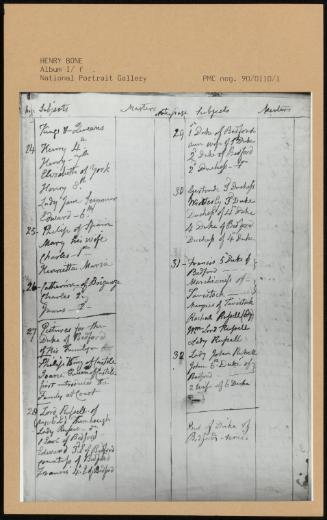 HENRY BONE
Album I/ f
National Portrait Gallery
PMC neg. 90/0110/1
Subjects
Masters
Page Subjects
Masters
Kings & Queens
24 Henry 4th
Henry 7th
Elizabeth of York
Henry 8th
Lady Jane Seymour
Edward 6th
25 Philip of Spain
Mary his wife
Charles 1st
Henrietta Maria
26 Catherine of Braganza
Charles 2
James 2
27 Pictures for the
Duke of Bedford
of His Family
Philip King of Castile
Joanna Queen of Castile
first introduced the
Family at Court
28 Lord Russell of
Thornhaugh
Lady Russell
1 Earl of Bedford
Edward 3d E of Bedford
Countess of Bedford
Francis 4 E of Bedford
29 1st Duke of Bedford
wife of 1st Duke
2d Duke of Bedford
2 Duchess
30 Gertrude Duchess
Wriothesly 3d Duke
Duchess of 4 Duke
4 Duke of Bedford
Duchess of 4 Duke
31 Francis 5 Duke of
Bedford
Marchioness of
Tavistock
Marquis of Tavistock
Rachel Russell
Wm Lord Russell
Lady Russell
32 Lady John Russell
John 6th Duke of
Bedford
2 wife of 6 Duke
End of Duke of
Bedfords